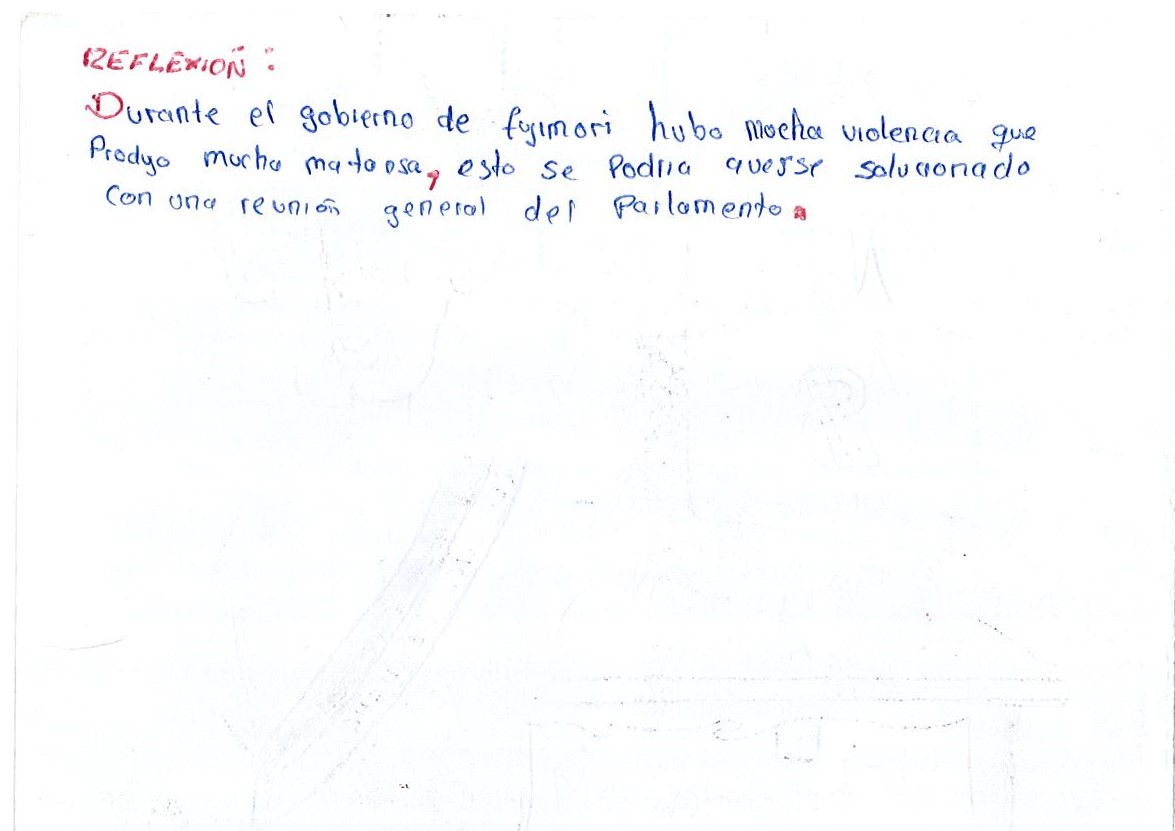 REFLEXIOÑ :
Durante el gobierno de fyjimori hubo mocha violencia que
Prodyo mucha matoosa, esto se Podria querse solucionado
Con una reunión general del Parlamento.